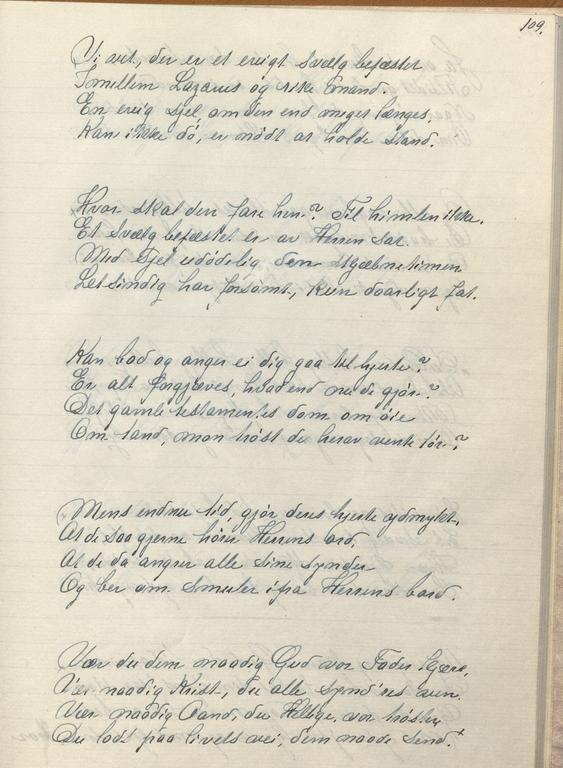 109.
Vi vet, der er et evigt Svælg befæstet
Imellem Lazarus og rike Mand.
En evig sjel, om den end meget længes,
Kan ikke dö, er nödt at holde Stand.
Hvor skal den fare hen? Til himlen ikke.
Et Svælg befæstet er av Herren sat.
Med sjel udödelig den
Letsindig har forsömt, kun daarligt fat.
Kan bod og anger ei dig gaa til hjerte?
Er alt forgjæves, hvad end nu de gjör?
Det gamle testamentes dom om öie
Om tand, mon tröst du herav vente tör?
Mens endnu tid, gjör deres hjerte ydmykt,
At de saa gjerne hörer Herrens ord,
At de da angrer alle sine synder
Og ber om Smuler ifra Herrens bord.
Vær du dem naadig Gud vor Fader kjære,
Vær naadig Krist, du alle synd'res ven.
Vær naadig Aand, du Hellige, vor tröster
Du lods paa livets vei, dem naade send.